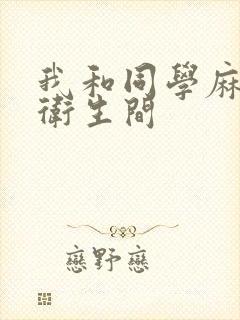 我和同學麻
衛生間
戀野戀